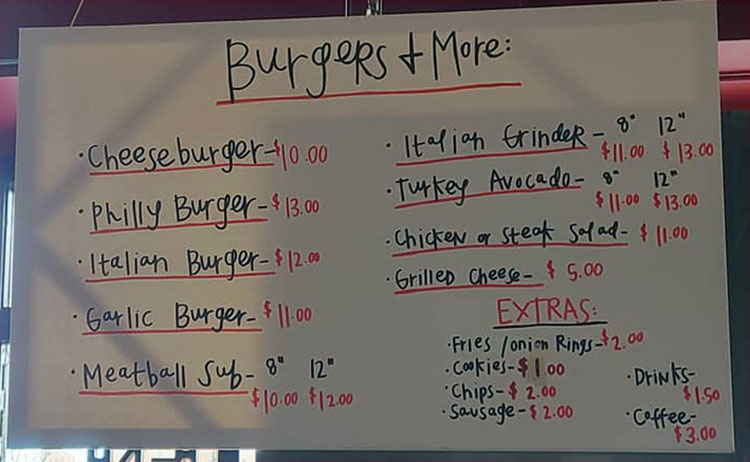 Burgers + More:
• Cheeseburger - $10.00
• Philly Burger - $13.00
• Italian Burger - $12.00
• Garlic Burger - $11.00
• Meatball Sub - 8" 12"
$10.00 $12.00
• Italian Grinder - 8" 12"
$11.00 $13.00
• Turkey Avocado - 8" 12"
$11.00 $13.00
• Chicken or Steak Salad - $11.00
• Grilled Cheese - $5.00
EXTRAS:
• Fries / onion Rings - $2.00
• Cookies - $1.00
• Chips - $2.00
• Sausage - $2.00
• Drinks -
$1.50
• Coffee -
$3.00